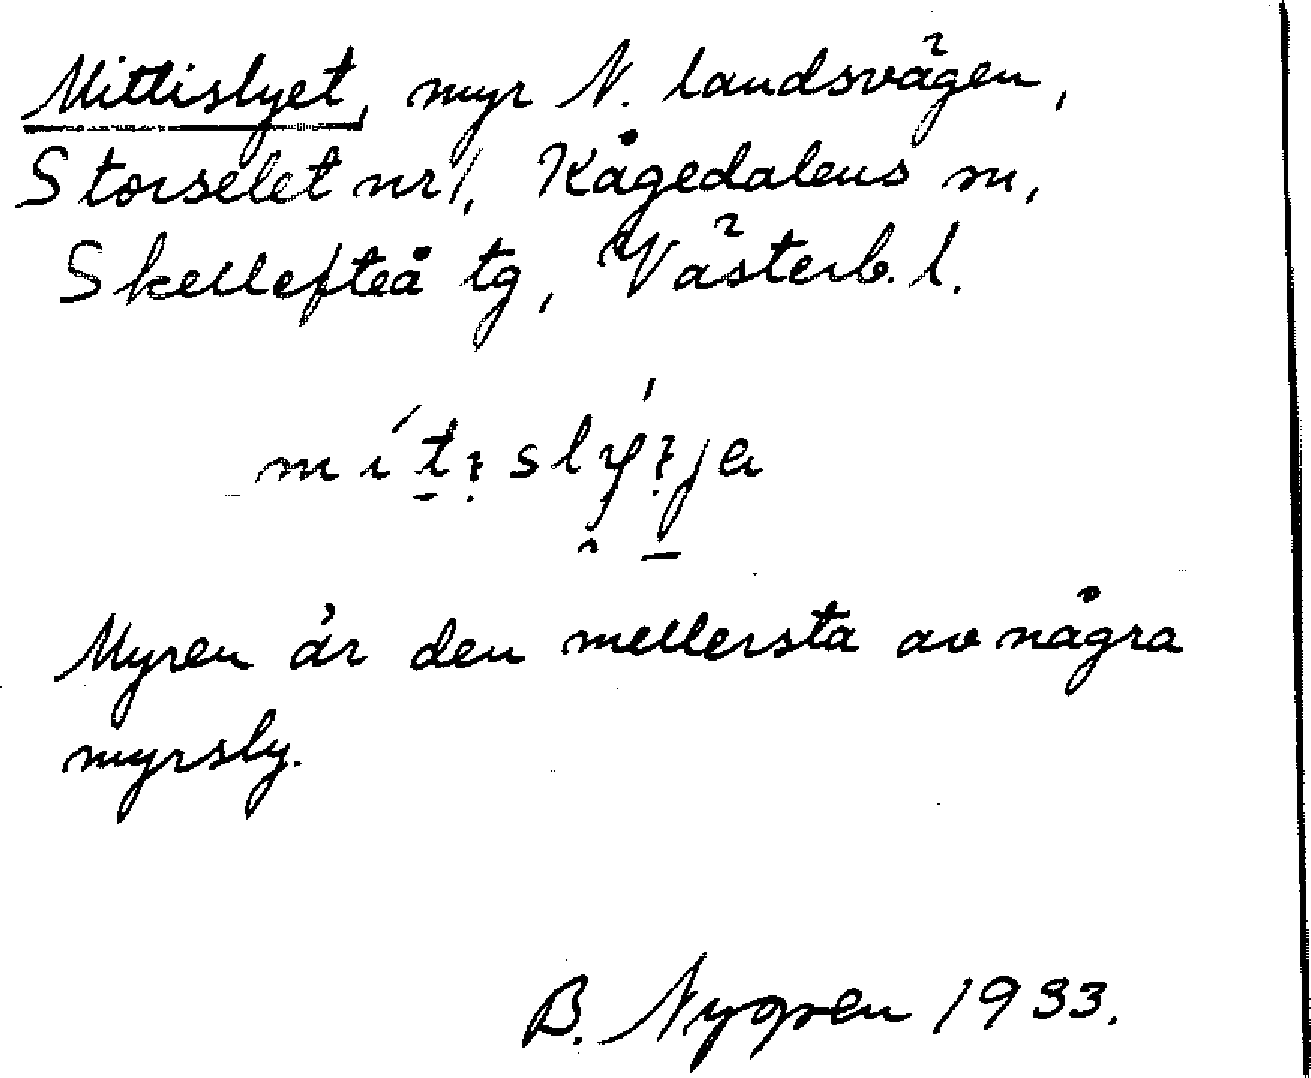 Mittislyet, myr N. landsvägen,
Storselet nr 1, Kågedalens m,
Skellefteå tg, Västerb. l.
Myren är den mellersta av några
myrsly.
B. Nygren 1933.